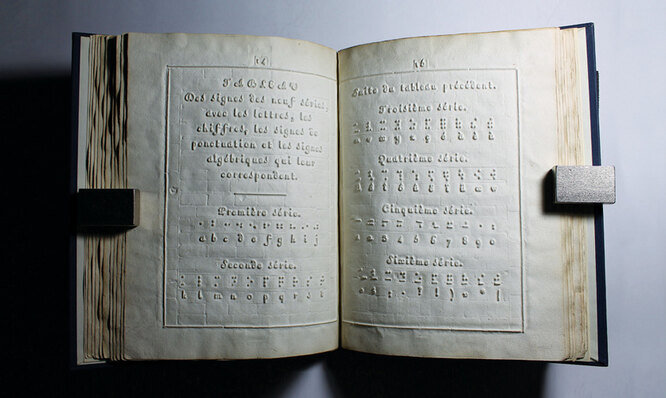 TABLEAU
Des signes des neuf séries,
avec les lettres, les
chiffres, les signes de
ponctuation et les signes
algébriques qui leur
correspondent.
Première série.
a b c d e f g h i j
Seconde série.
k l m n o p q r s t
Suite du tableau précédent.
Troisième série.
u v x y z ç é
Quatrième série.
â ê î ô û ë ï ü œ w
Cinquième série.
3 4 5 6 7 8 9 0
Sixième série.